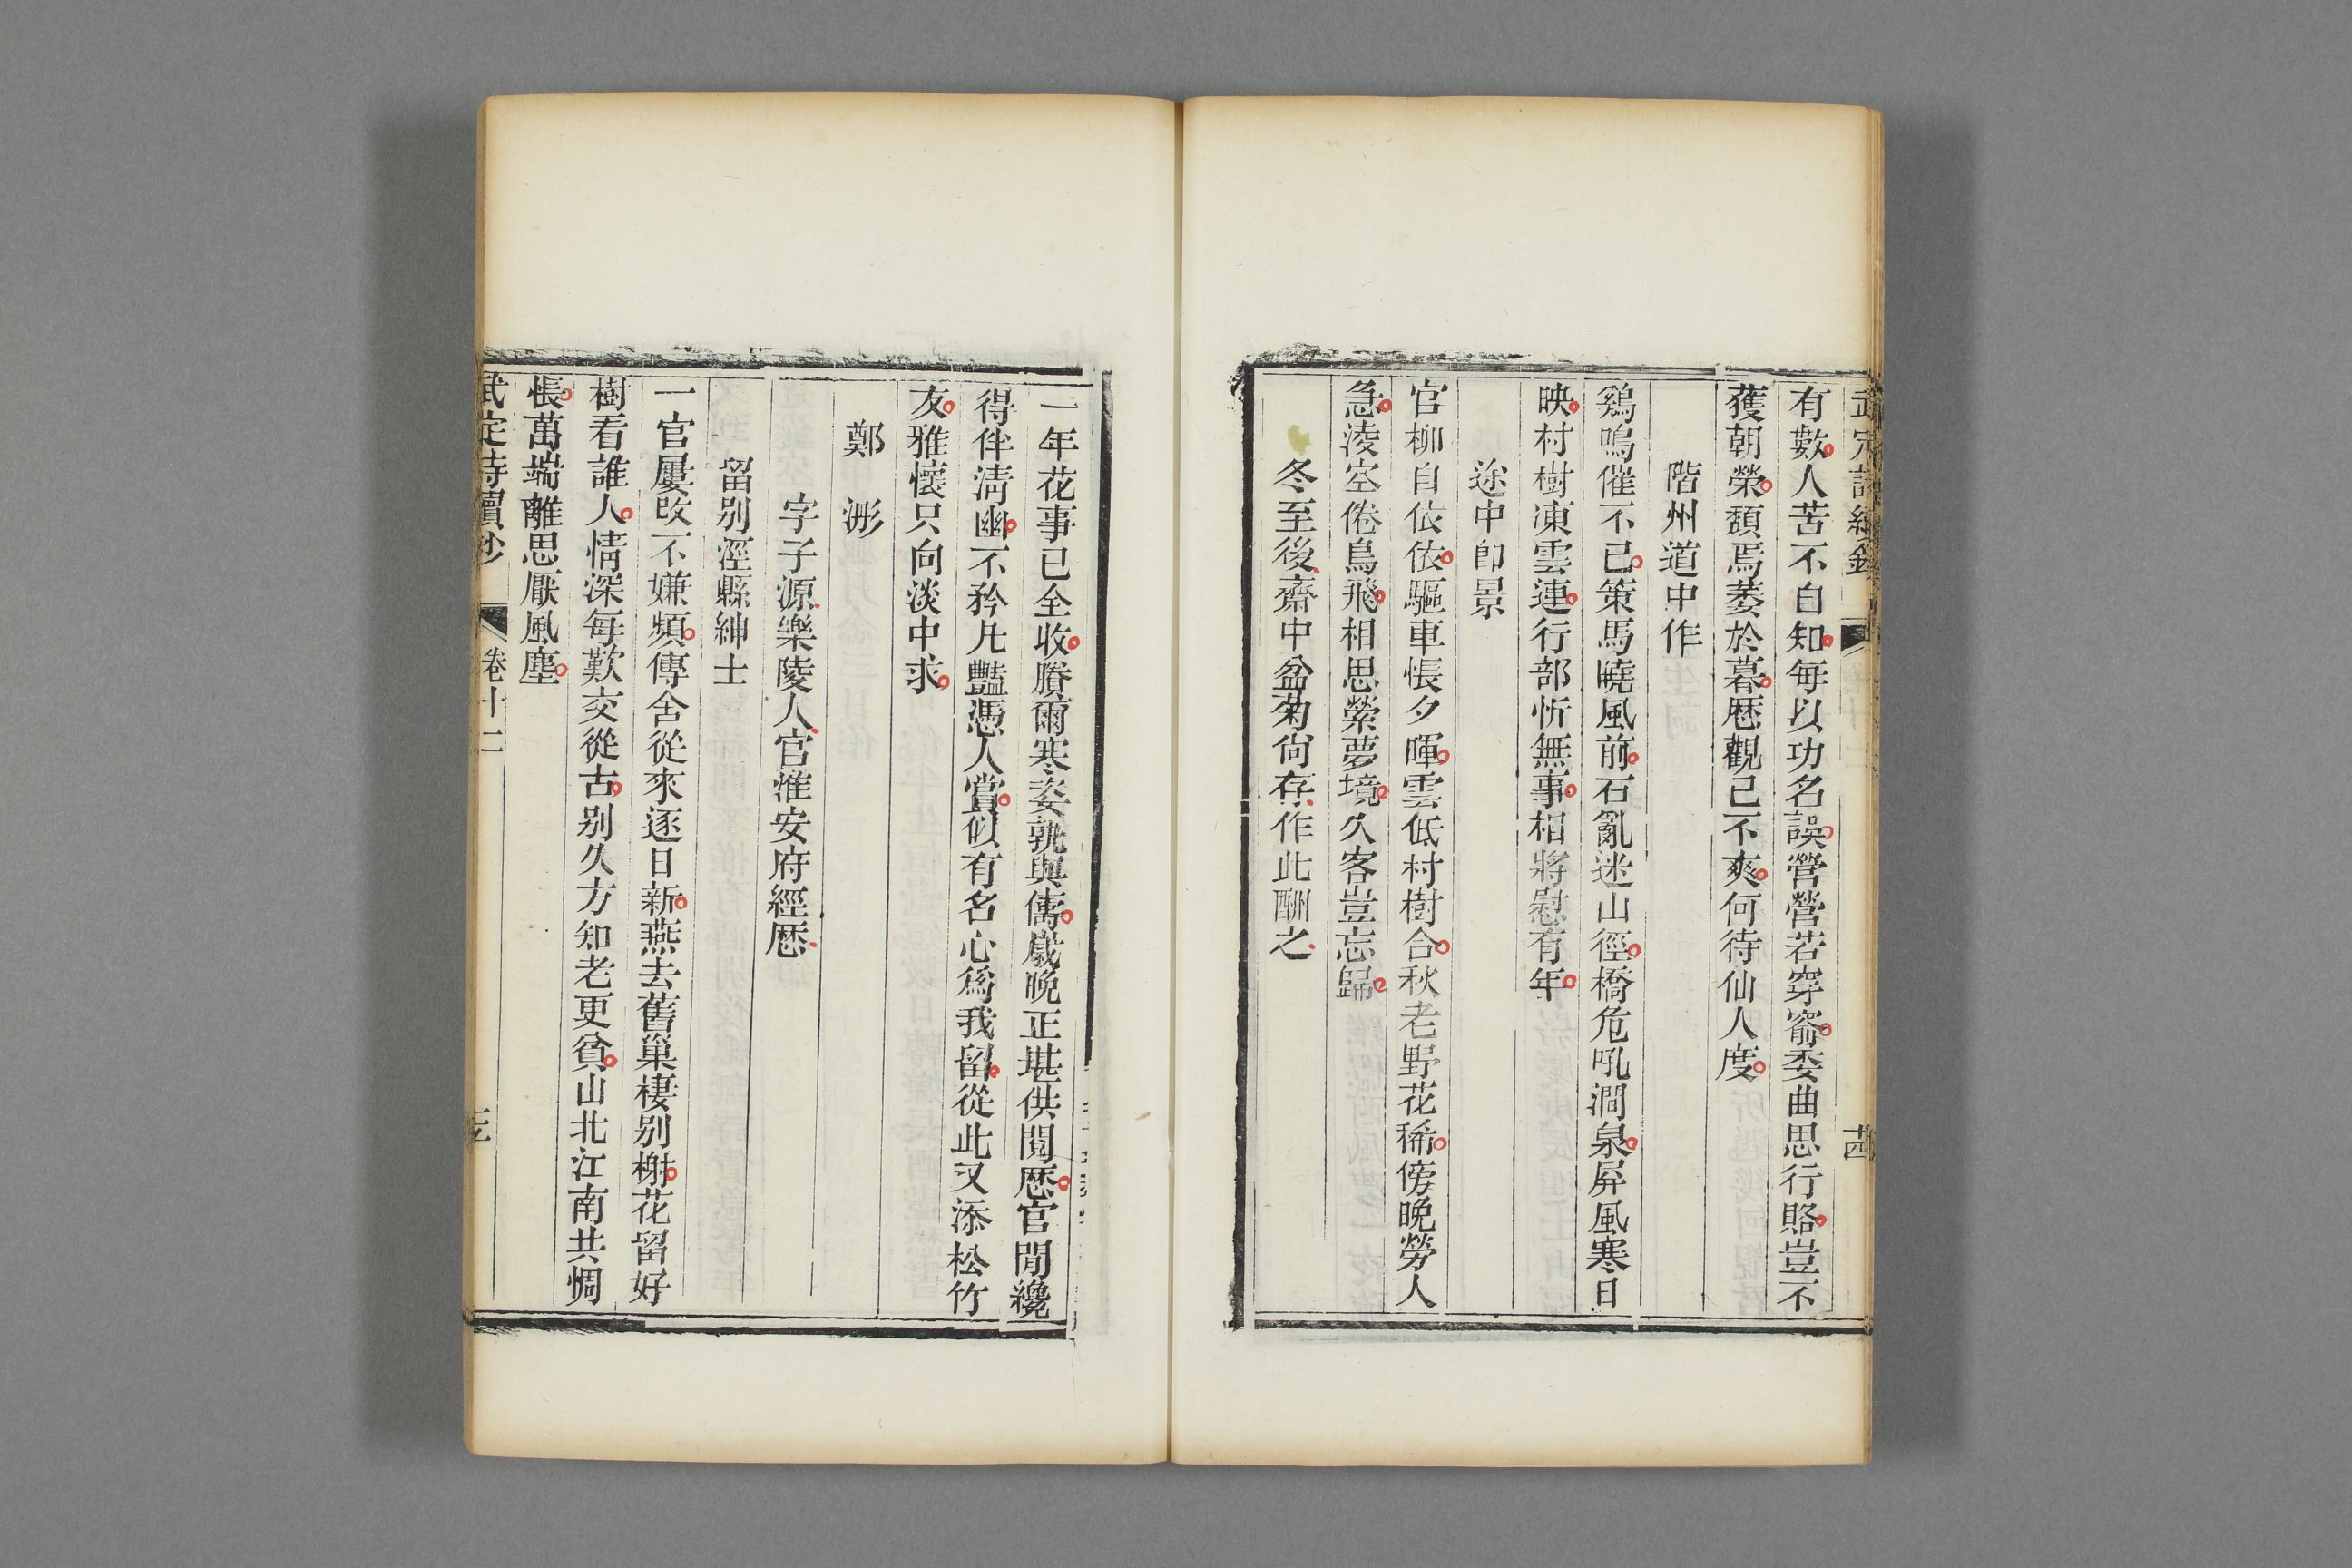 有數人苦不自知每以功名誤營營若穿窬委曲思行賂豈不
獲朝榮頽焉萎於暮歷觀已不爽何待仙人度
階州道中作
鷄鳴催不已策馬曉風前石亂迷山徑橋危吼澗泉屛風寒日
映村樹凍雲連行部忻無事相將慰有年
途中卽景
官柳自依依驅車悵夕暉雲低村樹合秋老野花稀傍晚勞人
急淩空倦鳥飛相思縈夢境久客豈忘歸
冬至後齋中盆菊尙存作此酬之
一年花事已全收賸爾寒姿孰與儔歲晚正堪供閱歷官閒纔
得伴淸幽不矜凡豔憑人賞似有名心爲我留從此又添松竹
友雅懷只向淡中求
鄭 浵
字子源樂陵人官淮安府經歷
留別涇縣紳士
一官屢改不嫌頻傳舍從來逐日新燕去舊巢棲別榭花留好
樹看誰人情深每歎交從古別久方知老更貧山北江南共惆
悵萬端離思厭風塵
武定詩續鈔 卷十二